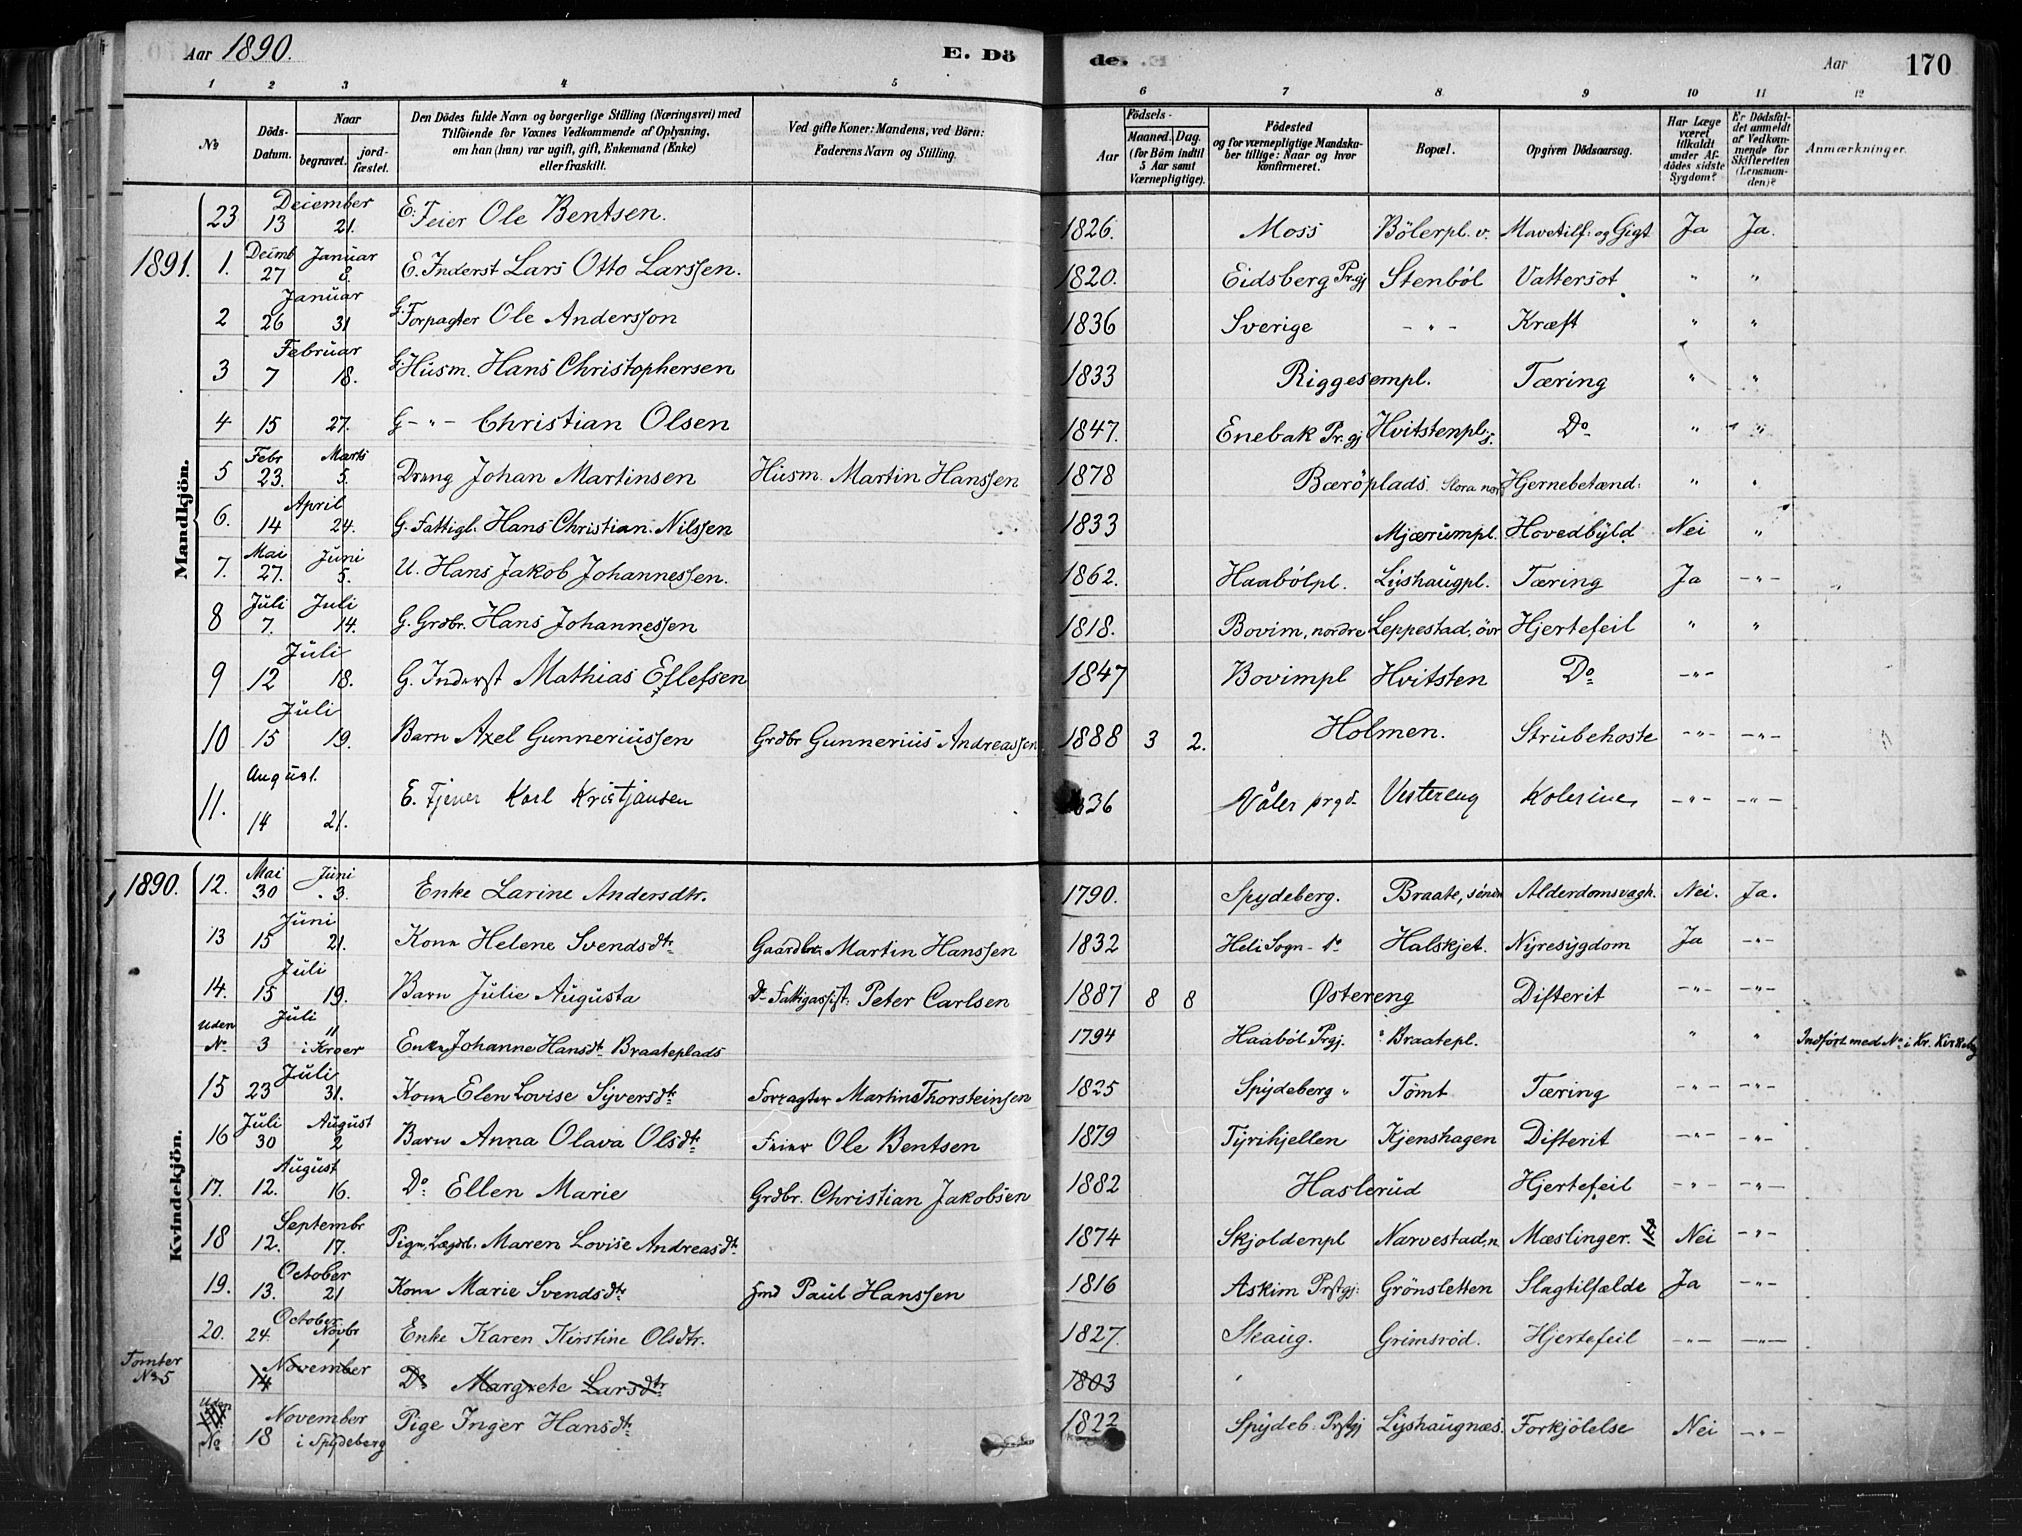 Aar 1890.
E. Dö
de.
Aar
170
1 2 3 4 5 6 7 8 9 10 11 12
No
Döds-Datum.
Naar
begravet.
jord-fæstet.
Den Dödes fulde Navn og borgerlige Stilling (Næringsvei) med
Tilföiende for Voxnes Vedkommende af Oplysning,
om han (hun) var ugift, gift, Enkemand (Enke)
eller fraskilt.
Ved gifte Koner: Mandens, ved Börn:
Faderens Navn og Stilling.
Födsels-
Aar
Maaned. Dag.
(for Börn indtil
5 Aar samt
Værnepligtige).
Födested
og for værnepligtige Mandska-
ber tillige: Naar og hvor
konfirmeret.
Bopæl.
Opgiven Dödsaarsag.
Har Læge
været
tilkaldt
under Af-
dödes sidste
Sygdom?
Er Dödsfal-
det anmeldt
af Vedkom-
mende for
Skifteretten
(Lensman-
den)?
Anmærkninger.
Mandkjön.
23 December 13 21. E. Feier Ole Bentsen. 1826. Moss Bölerpl. v. Mavetilf: og Gigt Ja Ja.
1891. 1. Decmb 27 Januar 8. E. Inderst Lars Otto Larssen. 1820. Eidsberg Pr.gj Stenböl Vattersot " "
2 Januar 26 31 G. Forpagter Ole Anderson 1836 Sverige - " - Kræft " "
3 Februar 7 18. G. Husm. Hans Christophersen 1833 Riggesempl. Tæring " "
4 15 27. G - " - Christian Olsen 1847. Enebak Pr.gj Hvitstenpl. s. Do " "
5 Febr 23. Marts 5. Dreng Johan Martinsen Husm. Martin Hanssen 1878 Bæröplads Store Hjernebetænd: " "
6. April 14 24. G. Fattigl. Hans Christian Nilssen 1833 Mjærumpl. Hovedbyld Nei "
7. Mai 27. Juni 5. U. Hans Jakob Johannessen. 1862. Haabölpl. Lyshaugpl. Tæring Ja - " -
8 Juli 7. Juli 14. G. Grdbr. Hans Johannessen 1818. Bovim, nordre Leppestad, övr Hjertefeil " "
9 Juli 12 18. G. Inderst Mathias Ellefsen 1847 Bovimpl Hvitsten Do - " -
10 Juli 15 19. Barn Axel Gunneriussen Grdbr Gunnerius Andreassen 1888 3 2. Holmen. Strubehoste - " - - " -
11. August. 14 21. E. Tjener Karl Kristjansen 1836 Våler prgd. Vestereng Kolerine - " - - " -
Kvindekjön.
1890. 12. Mai 30 Juni 3. Enke Larine Andersdtr. 1790. Spydeberg. Braate, söndre Alderdomsvagh. Nei. Ja.
13 Juni 15 21. Kone Helene Svendsdtr Gaardbr. Martin Hanssen 1832 Heli Sogn - Do Halskjet. Nyresygdom Ja - " -
14. Juli 15 19. Barn Julie Augusta Do Fattigassist: Peter Carlsen 1887 8 8 Østereng Difterit - " - - " -
Uden No Juli 3 11 i Kroer Enke Johanne Hansdtr Braateplads 1794 Haaböl Prgj. Braatepl. " " Indfört med No i Kr. Kirkebog
15 Juli 23 31. Kone Elen Lovise Syversdtr Forpagter Martin Thorsteinsen 1825 Spydeberg " Tömt Tæring - " - - " -
16 Juli 30 August 2 Barn Anna Olava Olsdtr Feier Ole Bentsen 1879 Tyrihjellen Kjenshagen Difterit - " - - " -
17. August 12. 16. Do Ellen Marie Grdbr. Christian Jakobsen 1882 Haslerud Hjertefeil - " - - " -
18 Septembr 12. 17. Pige, Lægdsl. Maren Lovise Andreasdtr 1874 Skjoldenpl Narvestad, n. Mæslinger. Nei - " -
19. October 13. 21 Kone Marie Svendsdtr Hmd Paul Hanssen 1816 Askim Prstgj: Grönsletten Slagtilfælde Ja - " -
20. October 24. Novbr 1 Enke Karen Kirstine Olsdtr. 1827. Skaug. Grimsröd. Hjertefeil - " - - " -
Tomter No 5 14 November Do Margrete Larsdtr 1803
Uden No November 18 i Spydeberg Pige Inger Hansdtr 1822 Spydeb. Prstgj Lyshaugnæs. Forkjölelse Nei - " -